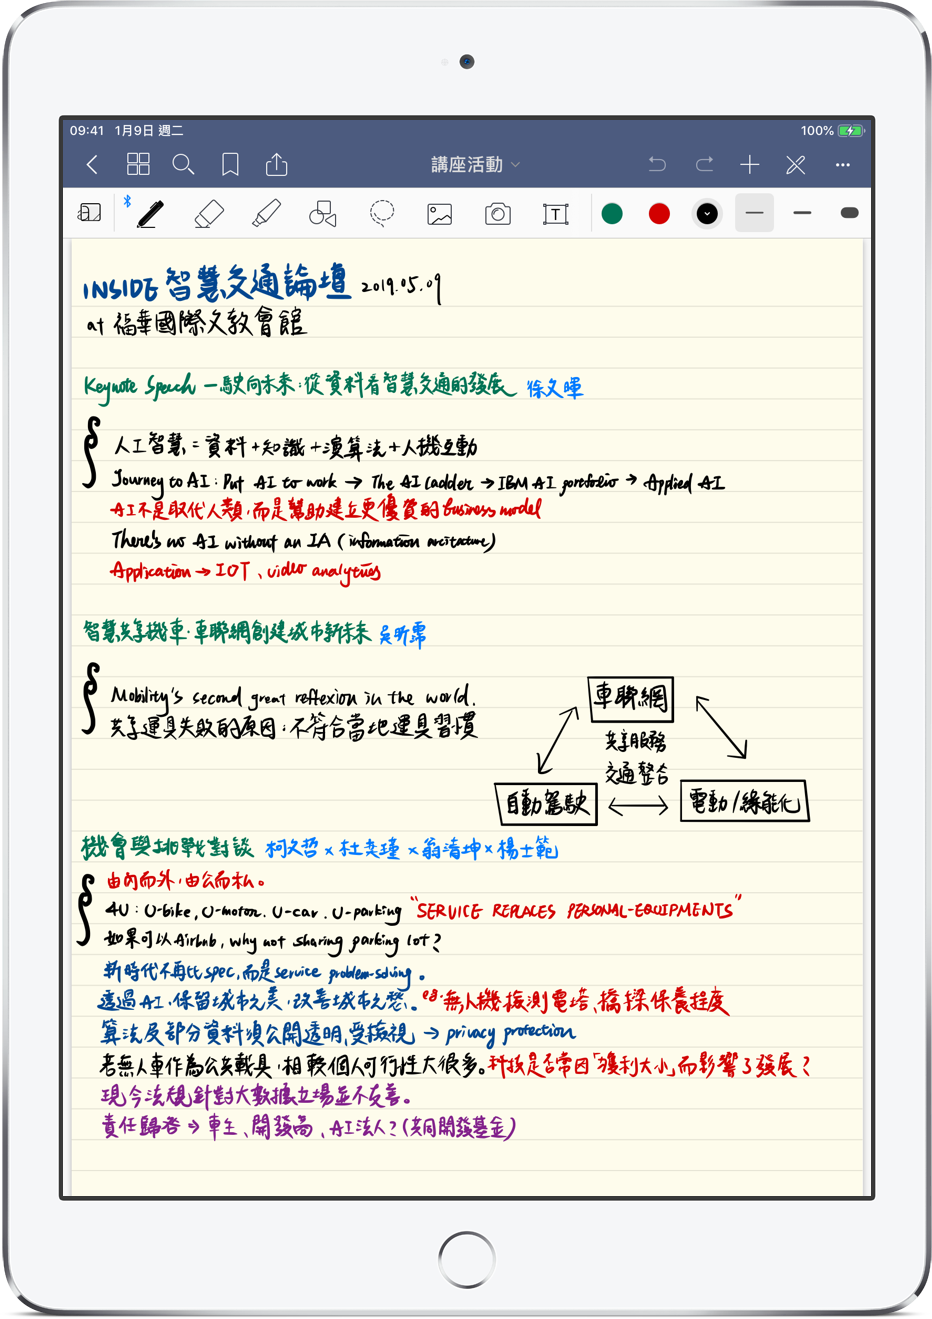 09:41 1月9日 週二 100%
講座活動
T
INSIDE 智慧交通論壇 2019.05.09
at 福華國際文教會館
Keynote Speech — 駛向未來:從資料看智慧交通的發展 徐文暉
人工智慧 = 資料 + 知識 + 演算法 + 人機互動
Journey to AI : Put AI to work → The AI Ladder → IBM AI portfolio → Applied AI
AI不是取代人類,而是幫助建立更優質的business model
There's no AI without an IA (information arcitature)
Application → IOT、video analytics
智慧共享機車.車聯網創建城市新未來 吳昕霈
Mobility's second great reflexion in the world.
共享運具失敗的原因:不符合當地運具習慣
車聯網
共享服務
交通整合
自動駕駛
電動/綠能化
機會與挑戰對談 柯文哲 × 杜奕瑾 × 翁清坤 × 楊士範
由內而外,由公而私。
4U : U-bike, U-motor. U-car. U-parking "SERVICE REPLACES PERSONAL-EQUIPMENTS"
如果可以Airbnb, why not sharing parking lot?
新時代不再比spec,而是service problem-solving。
透過AI,保留城市之美,改善城市之愁。eg.無人機檢測電塔、橋樑保養程度
算法及部分資料須公開透明,受檢視 → privacy protection
若無人車作為公共載具,相較個人可行性大很多。科技是否常因「獲利大小」而影響了發展?
現今法規針對大數據立場並不友善。
責任歸咎 → 車主、開發商、AI法人?(共同開發基金)